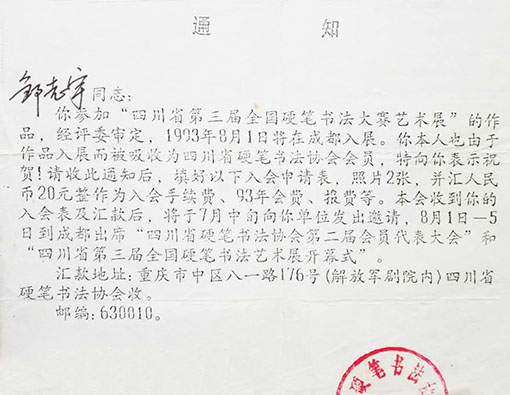 通 知
邹志宇同志：
你参加“四川省第三届全国硬笔书法大赛艺术展”的作
品，经评委审定，1993年8月1日将在成都入展。你本人也由于
作品入展而被吸收为四川省硬笔书法协会会员，特向你表示祝
贺！请收此通知后，填好以下入会申请表，照片2张，并汇人民
币20元整作为入会手续费、93年会费、报费等。本会收到你的
入会表及汇款后，将于7月中旬向你单位发出邀请，8月1日—5
日到成都出席“四川省硬笔书法协会第二届会员代表大会”和
“四川省第三届全国硬笔书法艺术展开幕式”。
汇款地址：重庆市中区八一路176号(解放军剧院内)四川省
硬笔书法协会收。
邮编：630010。
硬笔书法协